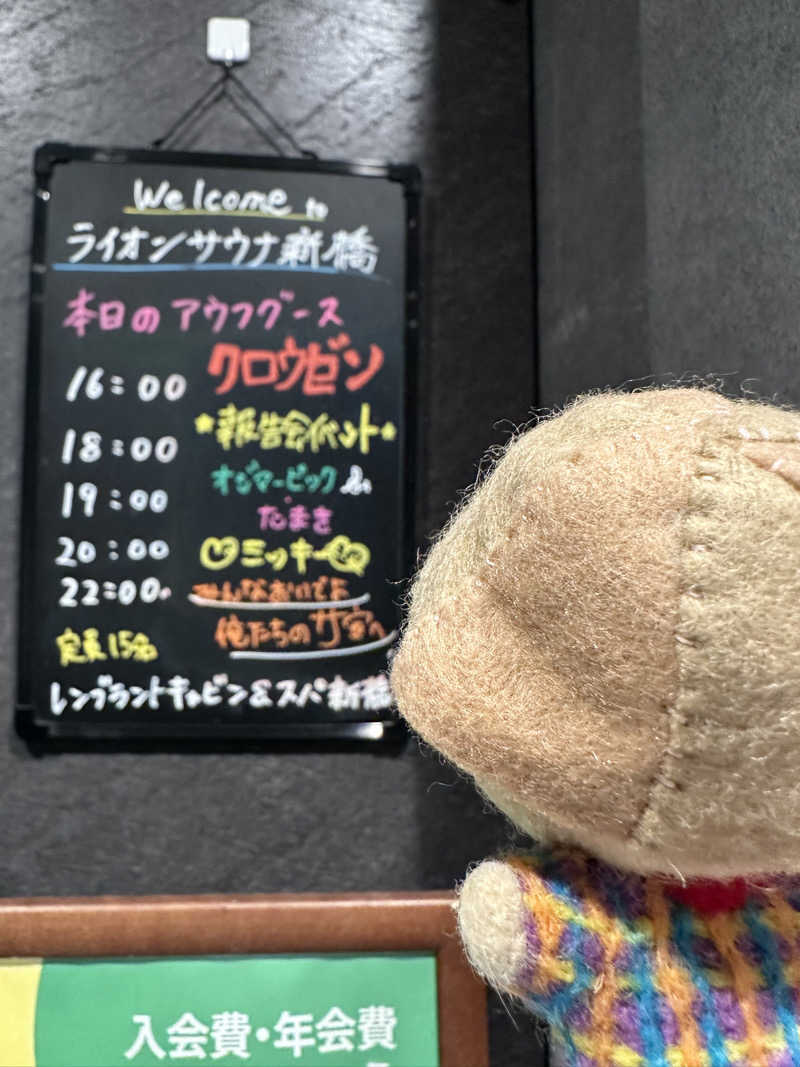 Welcome to
ライオンサウナ新橋
本日のアウフグース
16:00 クロウゼン
18:00 ★報告会イベント★
19:00 オジマーピック &
たまき
20:00 ミッキー
22:00 みんなおいでよ
俺たちのサ室へ
定員15名
レンブラントキャビン&スパ新橋
入会費・年会費